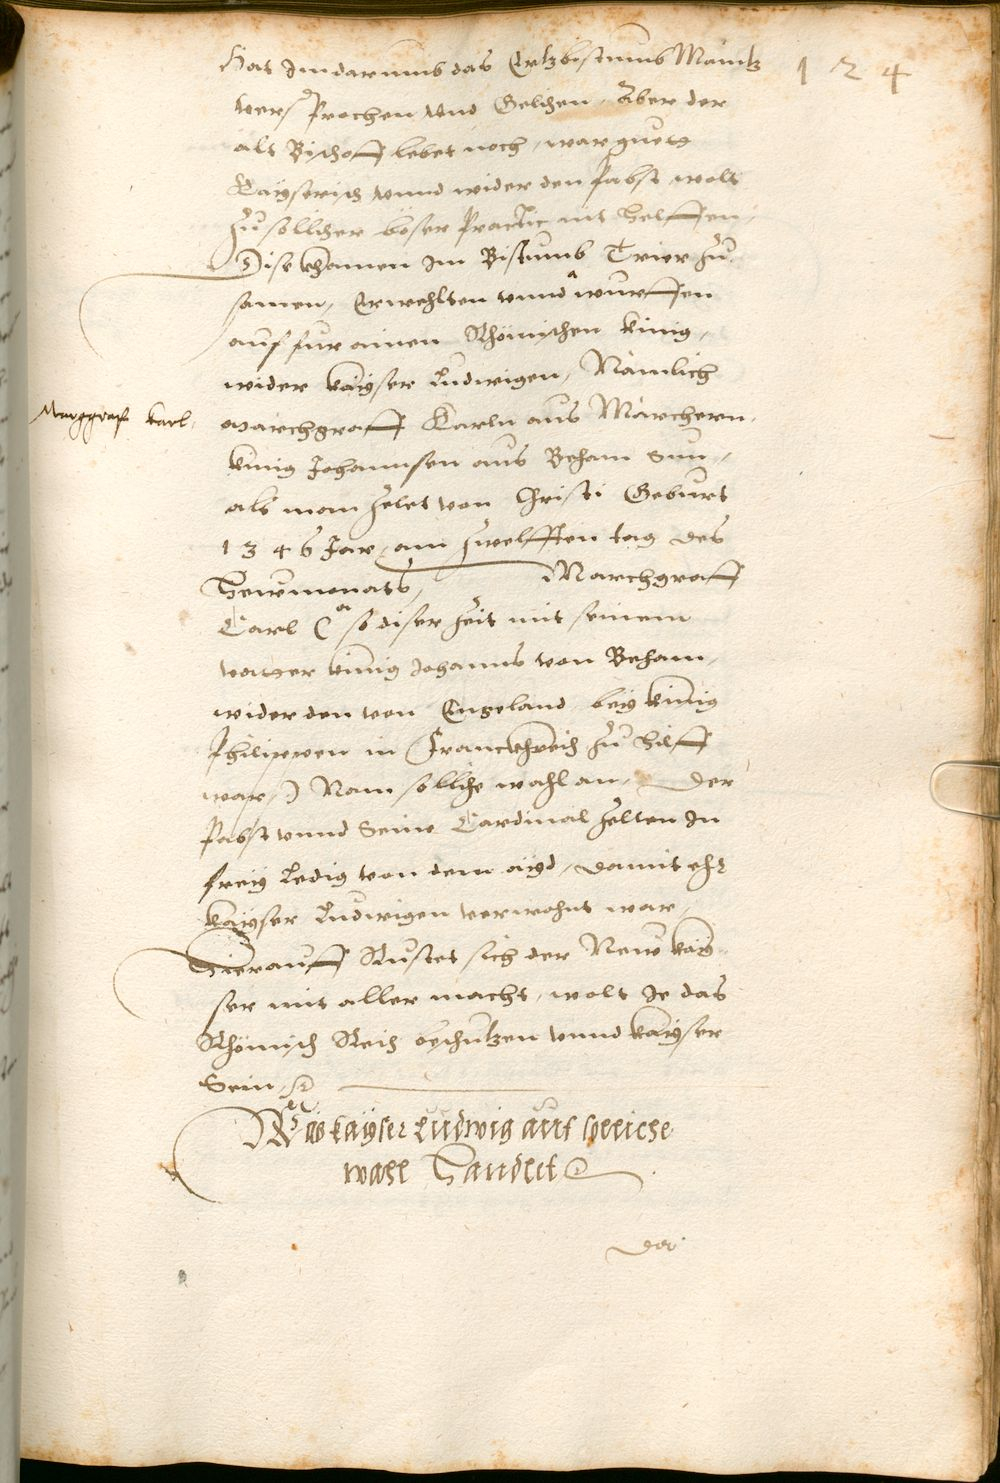 124
Hat Im darumb das Ertzbistumb Maintz
versprochen und Gelihen, Aber der
alt Bischoff lebet noch, war guets
Kayserisch unnd wider den Pabst, wolt
zu sollicher böser Practic nit helffen,
Dise khamen im Bistumb Trier zu
samen, Erwehlten unnd wurffen
auf fur ainen Rhömischen künig,
wider kayser Ludwigen, Nämlich
Marggraf karl,
marchgraff Karln aus Märchern,
künig Johannsen aus Beham Sun,
als man zelet von Christi Geburt
1346 Jar, am zwelfften tag des
Hewmonats, Marchgraff
Carl (so diser Zeit mit seinem
vatter künig Johanns von Beham,
wider den von Engeland bey künig
Philippen in Franckhreich zu hilff
war,) Nam sölliche wahl an, Der
Pabst unnd Seine Cardinal zelten In
frey Ledig von dem ayd, damit ehr
kayser Ludwigen verwohnt war,
Hierauff Rustet sich der New kay
ser mit aller macht, wolt Je das
Rhömisch Reich beschutzen unnd kayser
Sein,
Was kayser Ludwig auf solliche
wahl Handlet
der